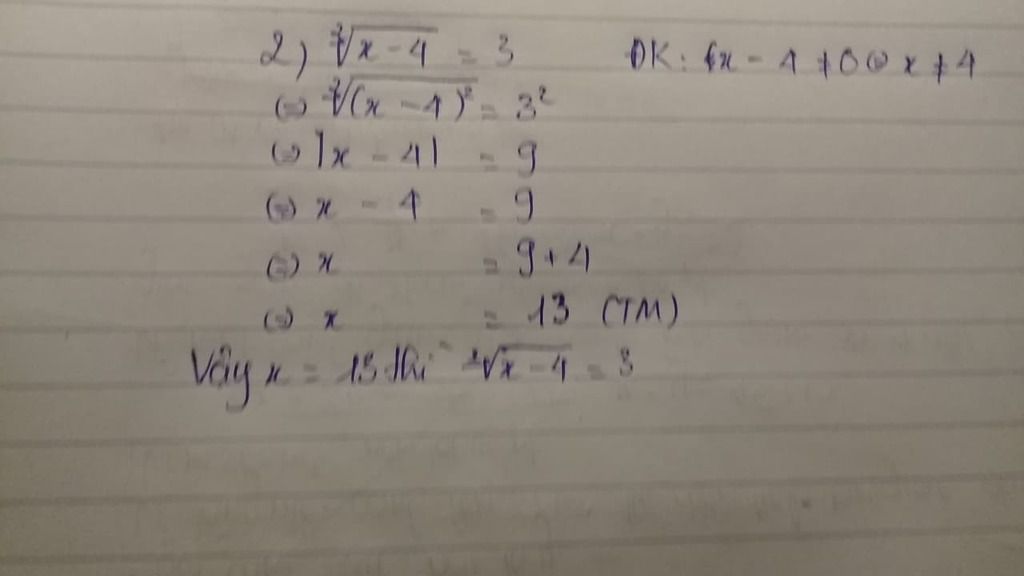 2) ²√(x - 4) = 3 ĐK: x - 4 ≠ 0 (=) x ≠ 4
(=) ²√(x - 4)² = 3²
(=) |x - 4| = 9
(=) x - 4 = 9
(=) x = 9 + 4
(=) x = 13 (TM)
Vậy x = 13 thì ²√(x - 4) = 3